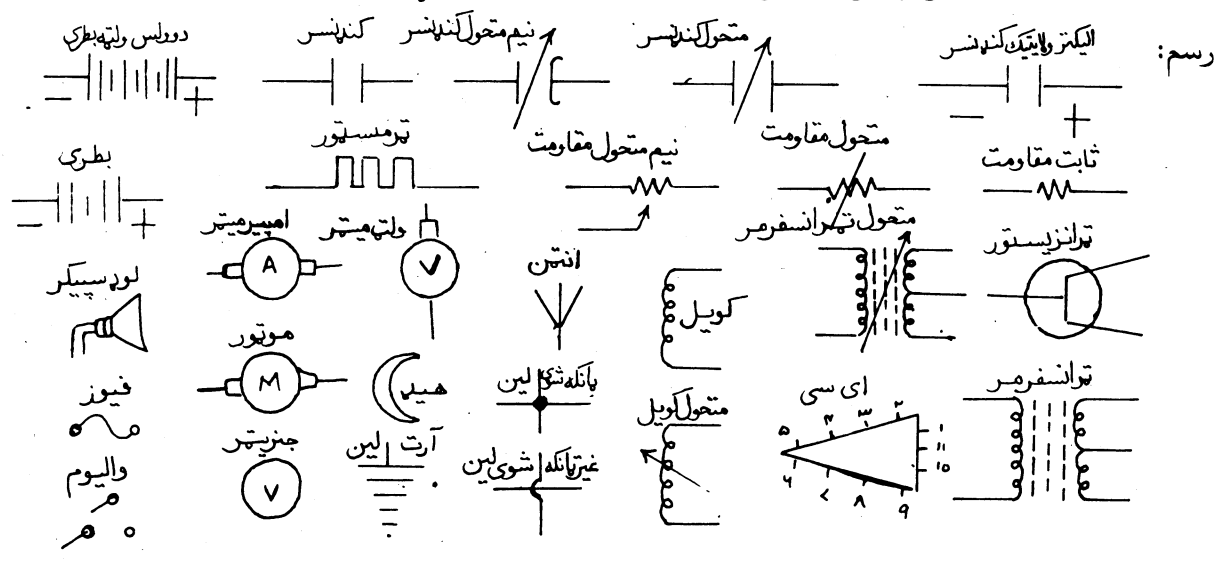 رسم:
الیکترولایتیک کندنسر
متحول کندنسر
نیم متحول کندنسر
کندنسر
دوولس ولټه بطری
ثابت مقاومت
متحول مقاومت
نیم متحول مقاومت
ترمستور
بطری
ترانزیستور
متحول ترانسفرمر
کویل
انتن
ولټ میټر
V
امپیر میټر
A
لوډسپیکر
ترانسفرمر
ای سی
۱
۲
۳
۴
۵
۶
۷
۸
۹
۱۰
۱۱
متحول کویل
پانکه شوی لین
هیډ
موټور
M
فیوز
غیر پانکه شوی لین
آرت لین
جنریټر
V
والیوم